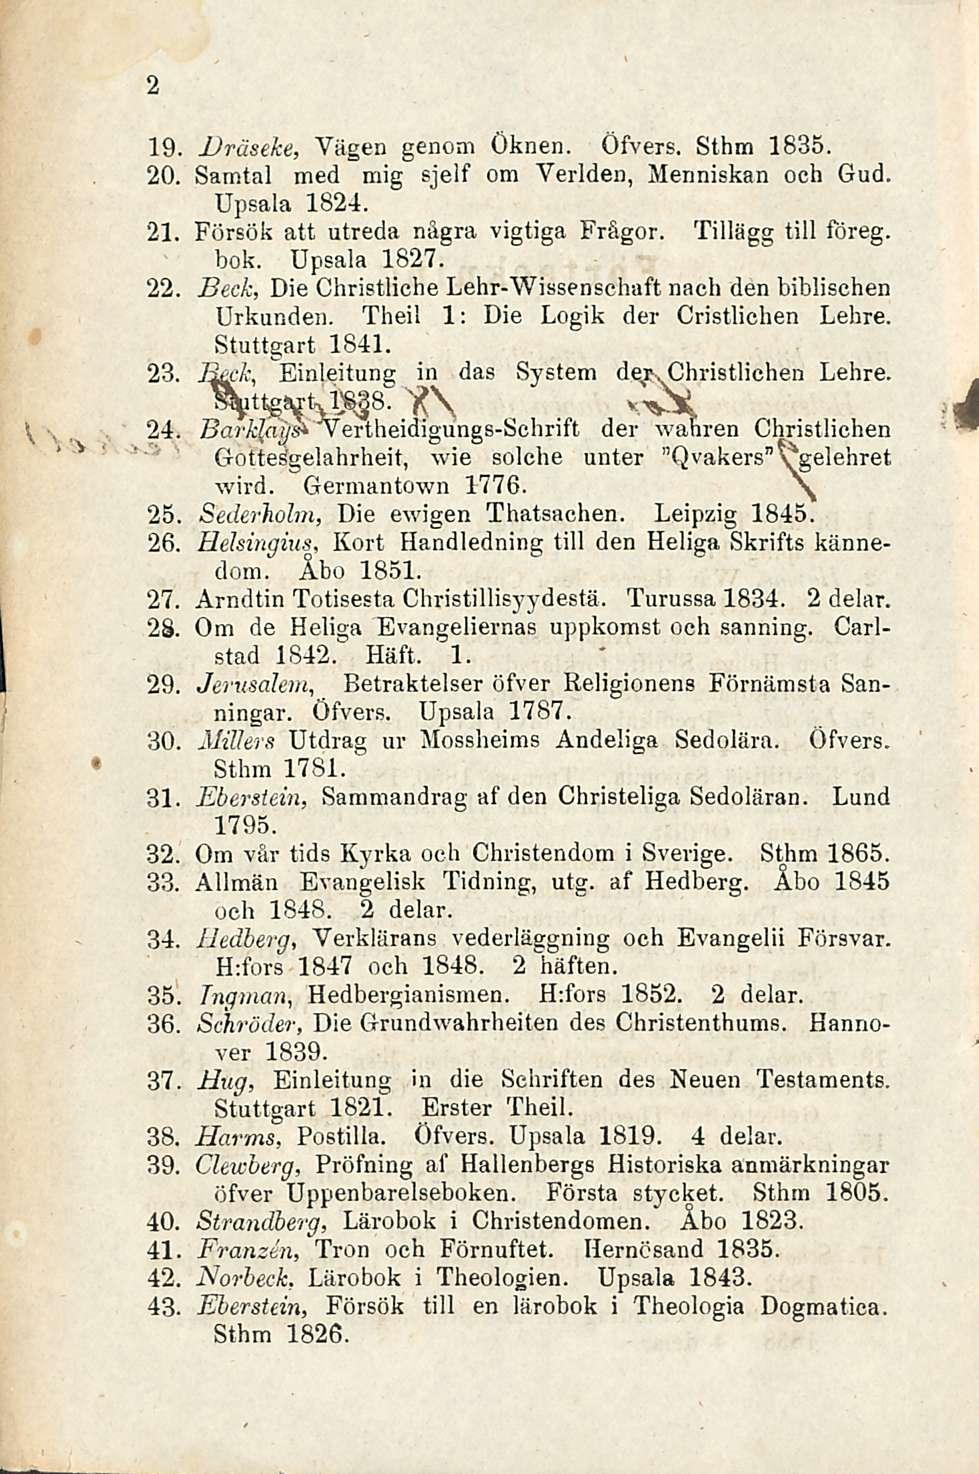 2
19. Dräseke, Vägen genom Öknen. Öfvers. Sthm 1835.
20. Samtal med mig sjelf om Verlden, Menniskan och Gud.
Upsala 1824.
21. Försök att utreda några vigtiga Frågor. Tillägg till föreg.
bok. Upsala 1827.
22. Beck, Die Christliche Lehr-Wissenschaft nach den biblischen
Urkunden. Theil 1: Die Logik der Cristlichen Lehre.
Stuttgart 1841.
23. Beck, Einleitung in das System der Christlichen Lehre.
Stuttgart 1838.
24. Barklays Vertheidigungs-Schrift der wahren Christlichen
Gottesgelahrheit, wie solche unter "Qvakers" gelehret
wird. Germantown 1776.
25. Sederholm, Die ewigen Thatsachen. Leipzig 1845.
26. Helsingius, Kort Handledning till den Heliga Skrifts känne-
dom. Åbo 1851.
27. Arndtin Totisesta Christillisyydestä. Turussa 1834. 2 delar.
28. Om de Heliga Evangeliernas uppkomst och sanning. Carl-
stad 1842. Häft. 1.
29. Jerusalem, Betraktelser öfver Religionens Förnämsta San-
ningar. Öfvers. Upsala 1787.
30. Millers Utdrag ur Mossheims Andeliga Sedolära. Öfvers.
Sthm 1781.
31. Eberstein, Sammandrag af den Christeliga Sedoläran. Lund
1795.
32. Om vår tids Kyrka och Christendom i Sverige. Sthm 1865.
33. Allmän Evangelisk Tidning, utg. af Hedberg. Åbo 1845
och 1848. 2 delar.
34. Hedberg, Verklärans vederläggning och Evangelii Försvar.
H:fors 1847 och 1848. 2 häften.
35. Ingman, Hedbergianismen. H:fors 1852. 2 delar.
36. Schröder, Die Grundwahrheiten des Christenthums. Hanno-
ver 1839.
37. Hug, Einleitung in die Schriften des Neuen Testaments.
Stuttgart 1821. Erster Theil.
38. Harms, Postilla. Öfvers. Upsala 1819. 4 delar.
39. Clewberg, Pröfning af Hallenbergs Historiska anmärkningar
öfver Uppenbarelseboken. Första stycket. Sthm 1805.
40. Strandberg, Lärobok i Christendomen. Åbo 1823.
41. Franzén, Tron och Förnuftet. Hernösand 1835.
42. Norbeck, Lärobok i Theologien. Upsala 1843.
43. Eberstein, Försök till en lärobok i Theologia Dogmatica.
Sthm 1826.